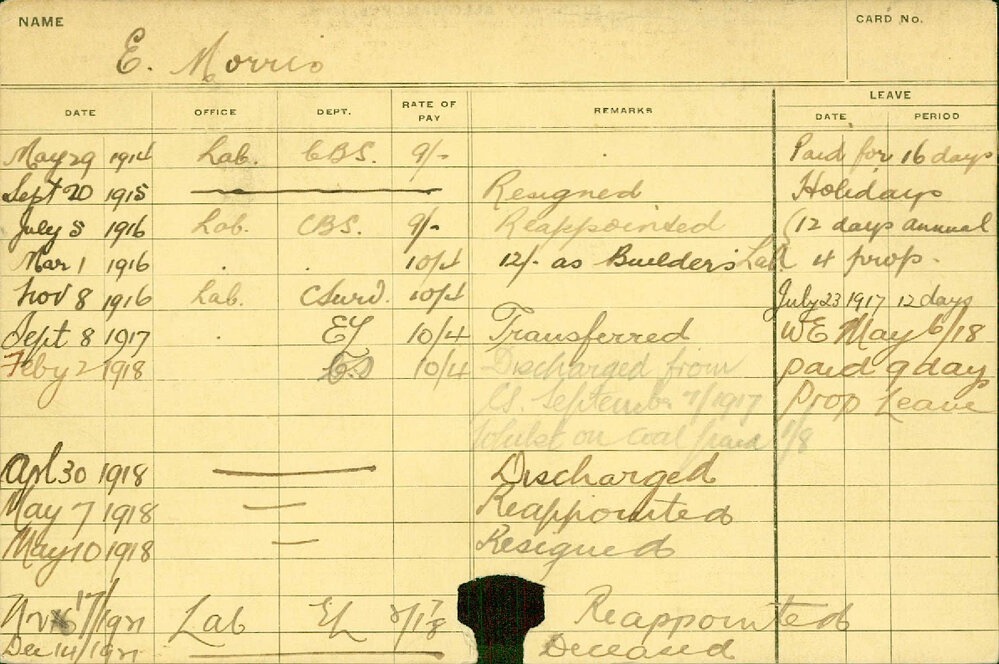 NAME E. Morris CARD No.
DATE OFFICE DEPT. RATE OF PAY REMARKS LEAVE DATE PERIOD
May 29 1914 Lab. CBS. 9/- Paid for 16 days
Sept 20 1915 Resigned Holidays
July 5 1916 Lab. CBS. 9/- Reappointed (12 days annual
Mar 1 1916 10/4 12/- as Builders Lab 4 prop.
Nov 8 1916 Lab. 10/4 July 23 1917 12 days
Sept 8 1917 10/4 Transferred WE May 6/18
Feby 2 1918 10/4 Discharged from paid 9 day
September 7/1917 Prop Leave
Whilst on coal paid 1/8
Apl 30 1918 Discharged
May 7 1918 Reappointed
May 10 1918 Resigned
17/1921 Lab EL Reappointed
Dec 14/1921 Deceased